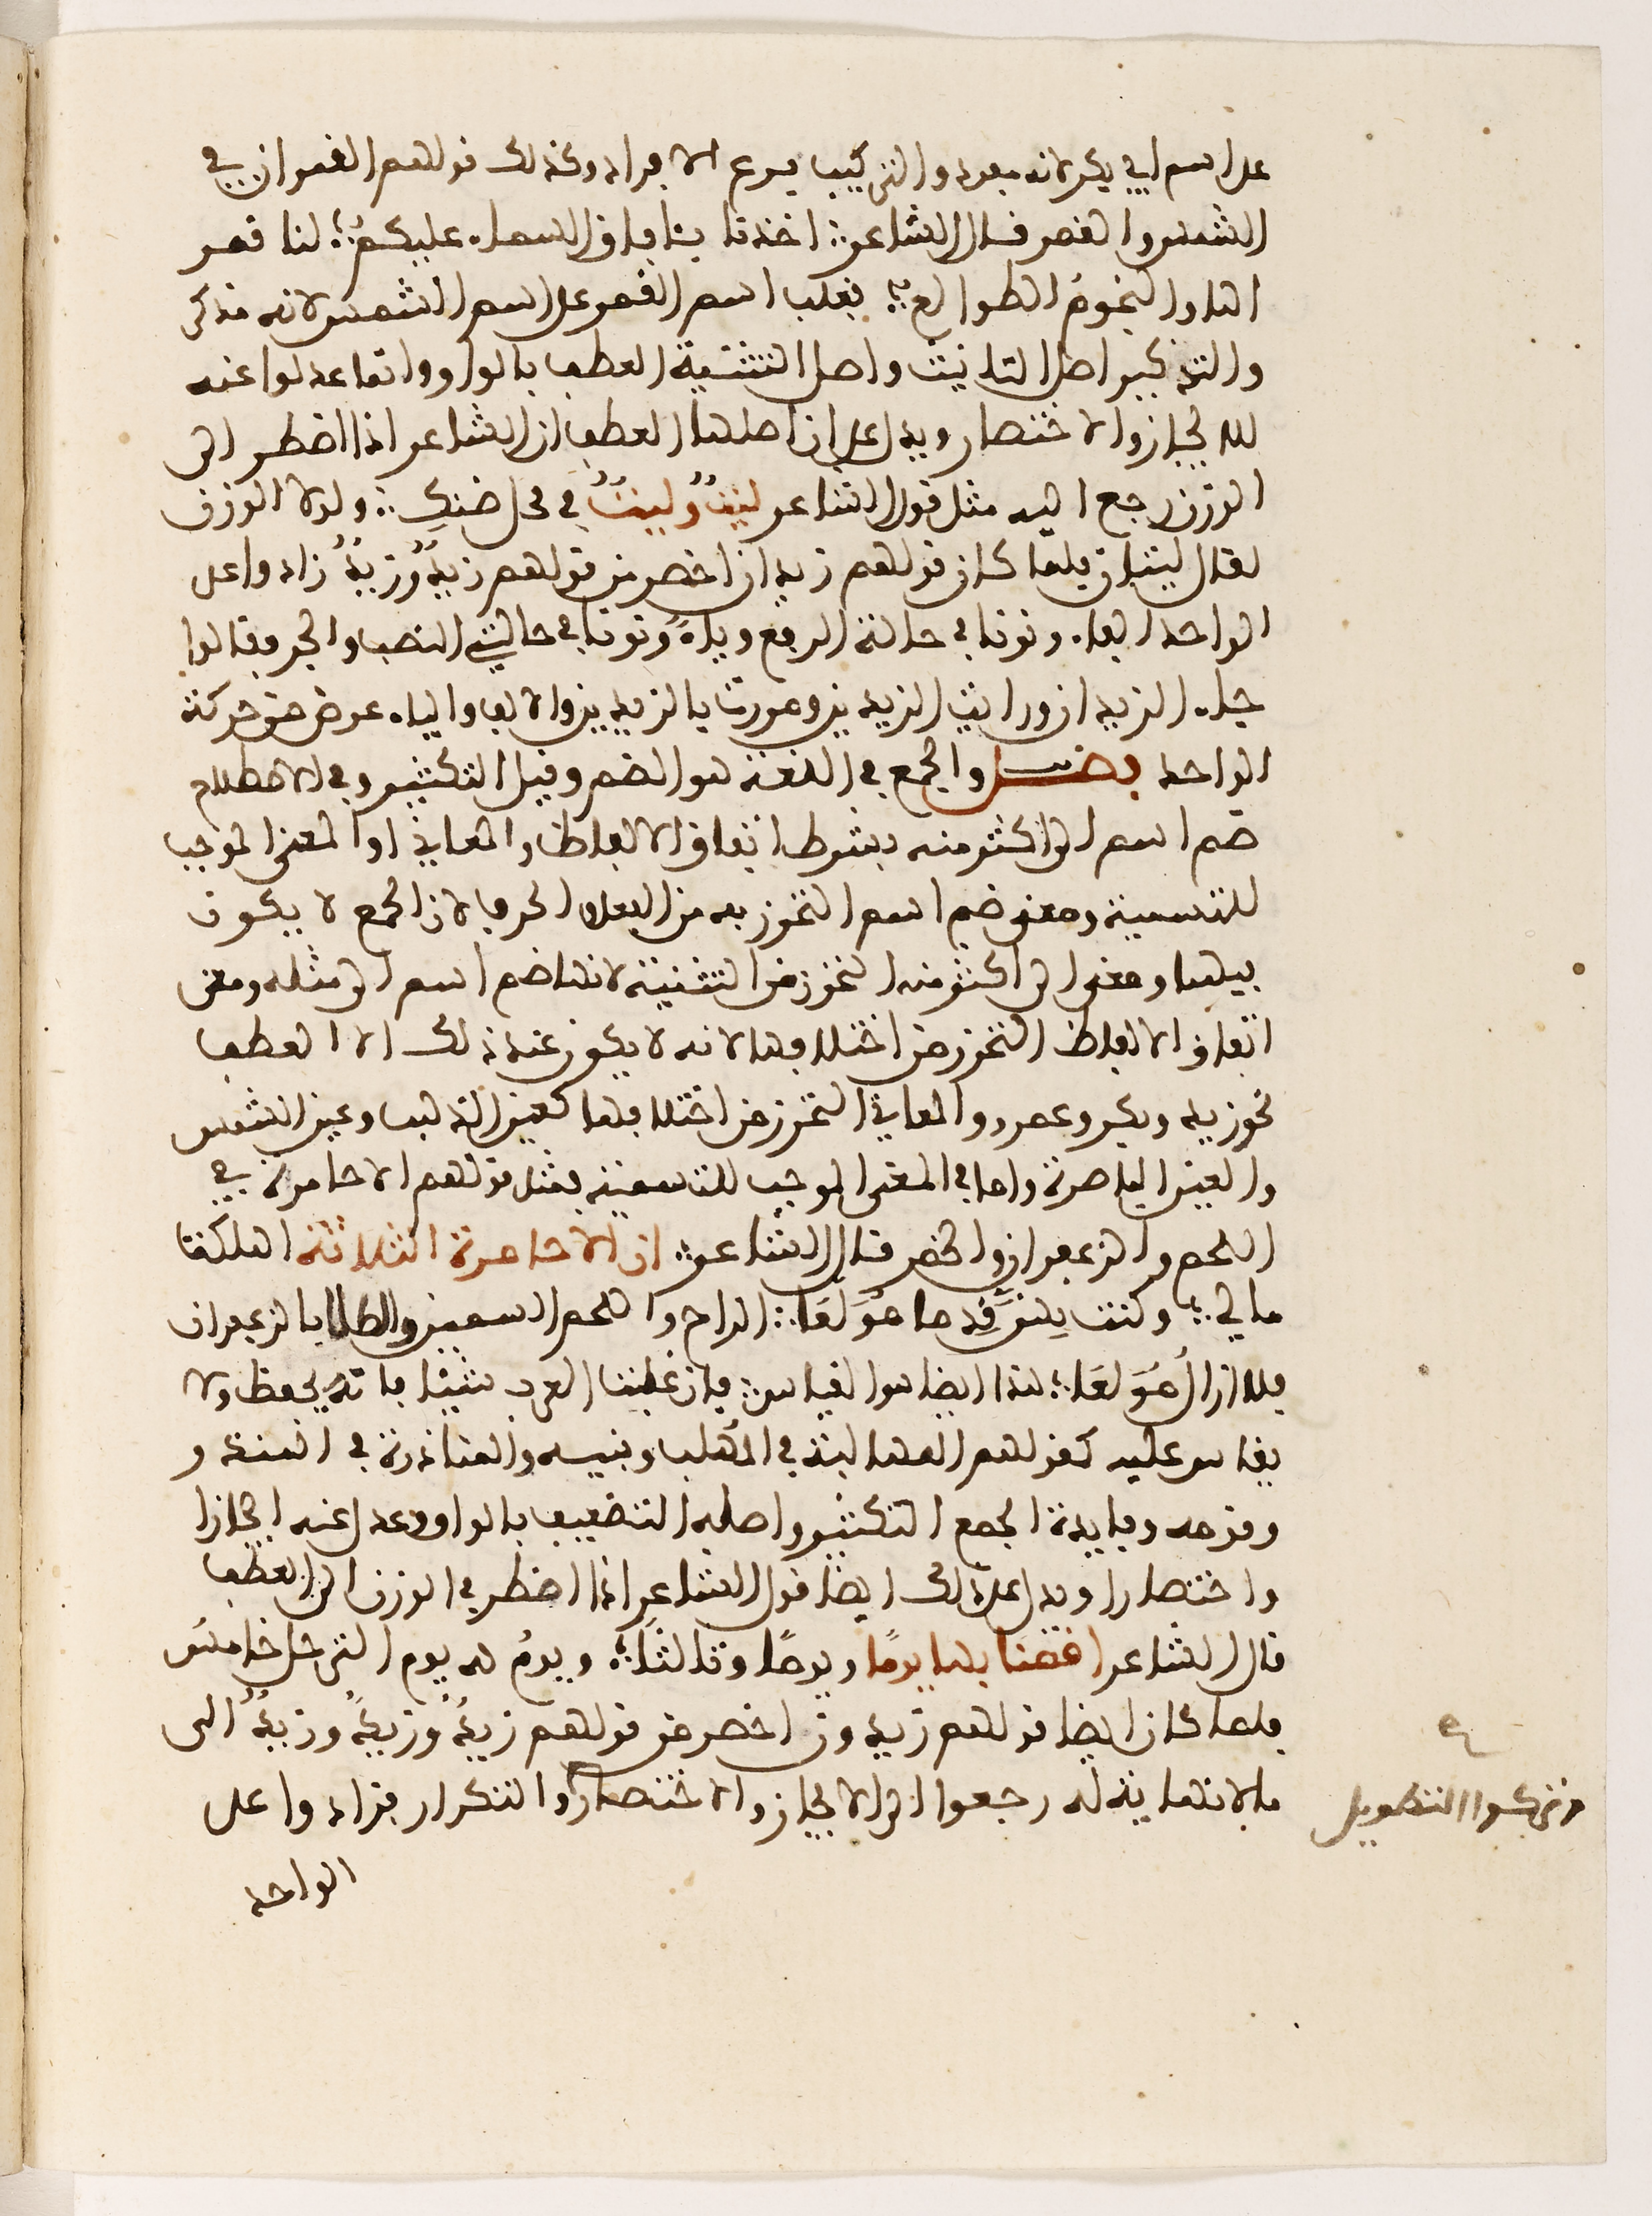 على اسم ابي بكر لانه مفرد والتركيب فرع الافراد وكذلك قولهم القمران في
الشمس والقمر قال الشاعر ؛ اخذنا بئافاق السماء عليكمُ ؛ لنا قمر
اها والنجومُ الطوالع ؛ فغلب اسم القمر على اسم الشمس لانه مذكر
والتذكير اصل التانيث واصل التثنية العطف بالواو وانما عدلوا عنه
للايجاز والاختصار ويدل على ان اصلها العطف ان الشاعر اذا اضطر الى
الوزن رجع اليه مثل قول الشاعر ليثٌ وليثٌ في محل ضنكِ ؛ ولولا الوزن
لقال ليثان فلما كان قولهم زيدان اخصر من قولهم زيدٌ وزيدٌ زادوا على
الواحد الفاء ونونا في حالة الرفع وياءً ونونا في حالتي النصب والجر فقالوا
جاء الزيدان ورايت الزيدين ومررت بالزيدين والالف والياء عوض من حركة
الواحد فصل والجمع في اللغة هو الضم وقيل التكثير وفي الاصطلاح
ضم اسم الى اكثر منه بشرط اتفاق الالفاظ والمعاني او المعنى الموجب
للتسمية ومعنى ضم اسم التحرز به من الفعل والحرف لان الجمع لا يكون
فيهما ومعنى الى اكثر منه التحرز من التثنية لانها ضم اسم الى مثله ومعنى
اتفاق الالفاظ التحرز من اختلافها لانه لا يكون عند ذلك الا العطف
نحو زيد وبكر وعمرو والمعاني التحرز من اختلافها كعين الذهب وعين الشمس
والعين الباصرة واما في المعنى الموجب للتسمية فمثل قولهم الاحامرة في
اللحم والزعفران والخمر قال الشاعر ؛ ان الاحامرة الثلاثة اهلكتا
مالي ؛ وكنت بهن قِدما مُوَلَعَا ؛ الراح واللحم السمين والطلا بالزعفران
فلا ازال مُوَلعَا ؛ هذا ايضا هو القياس ؛ فان غلبت العرب شيئا فانه يحفظ ولا
يقاس عليه كقولهم المهالبة في المُهلب وبنيه والمناذرة في المنذر و
وقومه وفايدة الجمع التكثير واصله التضعيف بالواو وعدل عنه ايجازا
واختصارا ويدل على ذلك ايضا قول الشاعر اذا اضطر في الوزن الى العطف
قال الشاعر اقمنا بها يومًا ويومًا وثالثًا ؛ ويومُ له يوم الترحل خامسُ
فلما كان ايضا قولهم زيدون اخصر من قولهم زيدٌ وزيدٌ وزيدٌ الى
ما لا نهاية له رجعوا الى الايجاز والاختصار والتكرار فزادوا على
وتركوا التطويل
الواحد